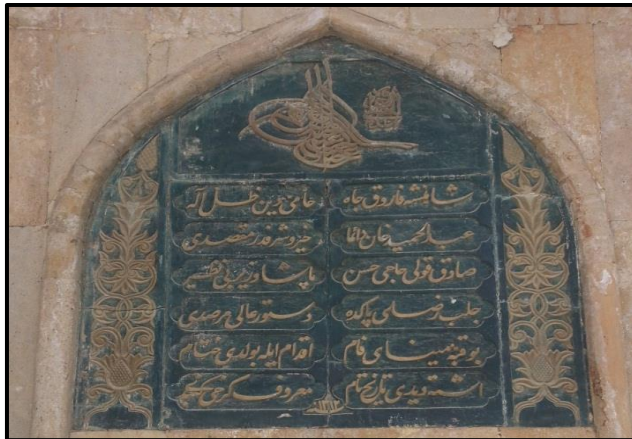 شاهنشه فاروق جاه حامی دین ظل اله
عبد الحمید خان دائما خیر و شرفدر مقصدی
صادق قولی حاجی حسن پاشا وزیر بی نظیر
جلب رضای پاکده دستور عالی مرصدی
بو قبه مینای فام اقدام ایله بولدی ختام
اشته دیدی تاریخ تام معروف کرخی